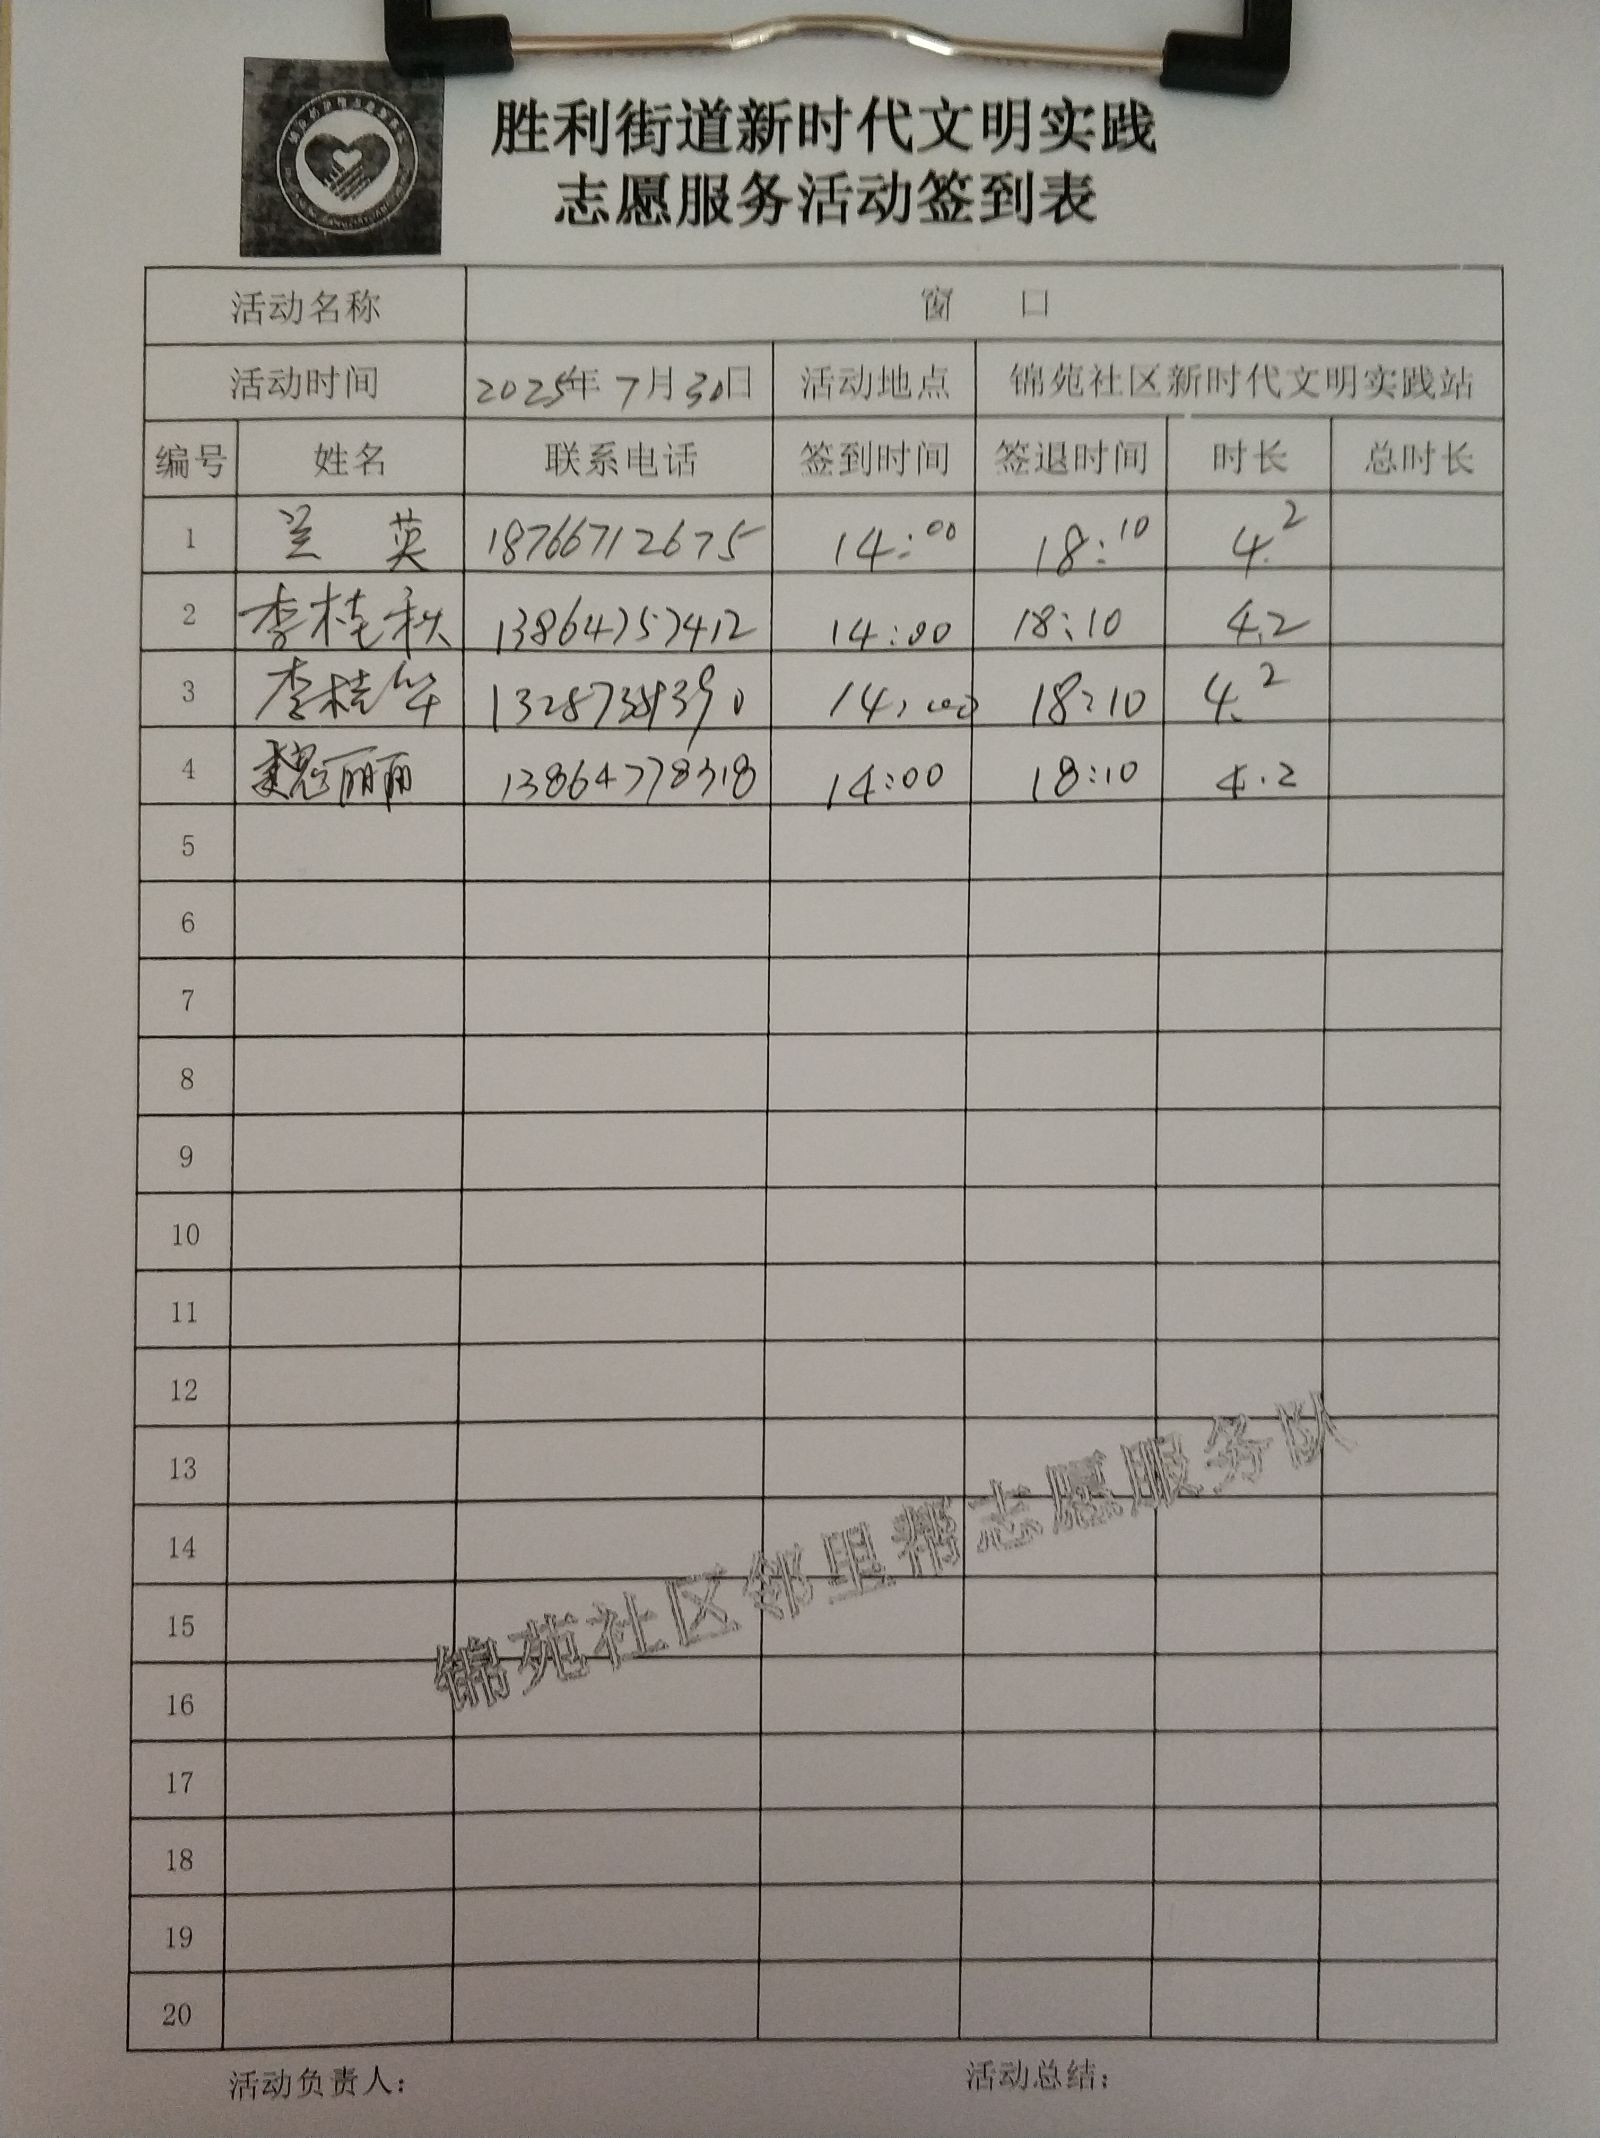 胜利街道新时代文明实践
志愿服务活动签到表
活动名称 窗 口
活动时间 2025年7月30日 活动地点 锦苑社区新时代文明实践站
编号 姓名 联系电话 签到时间 签退时间 时长 总时长
1 兰 英 18766712675 14:00 18:10 4.2
2 李桂秋 13864757412 14:00 18:10 4.2
3 李桂华 14:00 18:10 4.2
4 魏丽丽 13864778318 14:00 18:10 4.2
5
6
7
8
9
10
11
12
13
14
15
16
17
18
19
20
锦苑社区邻里帮志愿服务队
活动负责人: 活动总结: